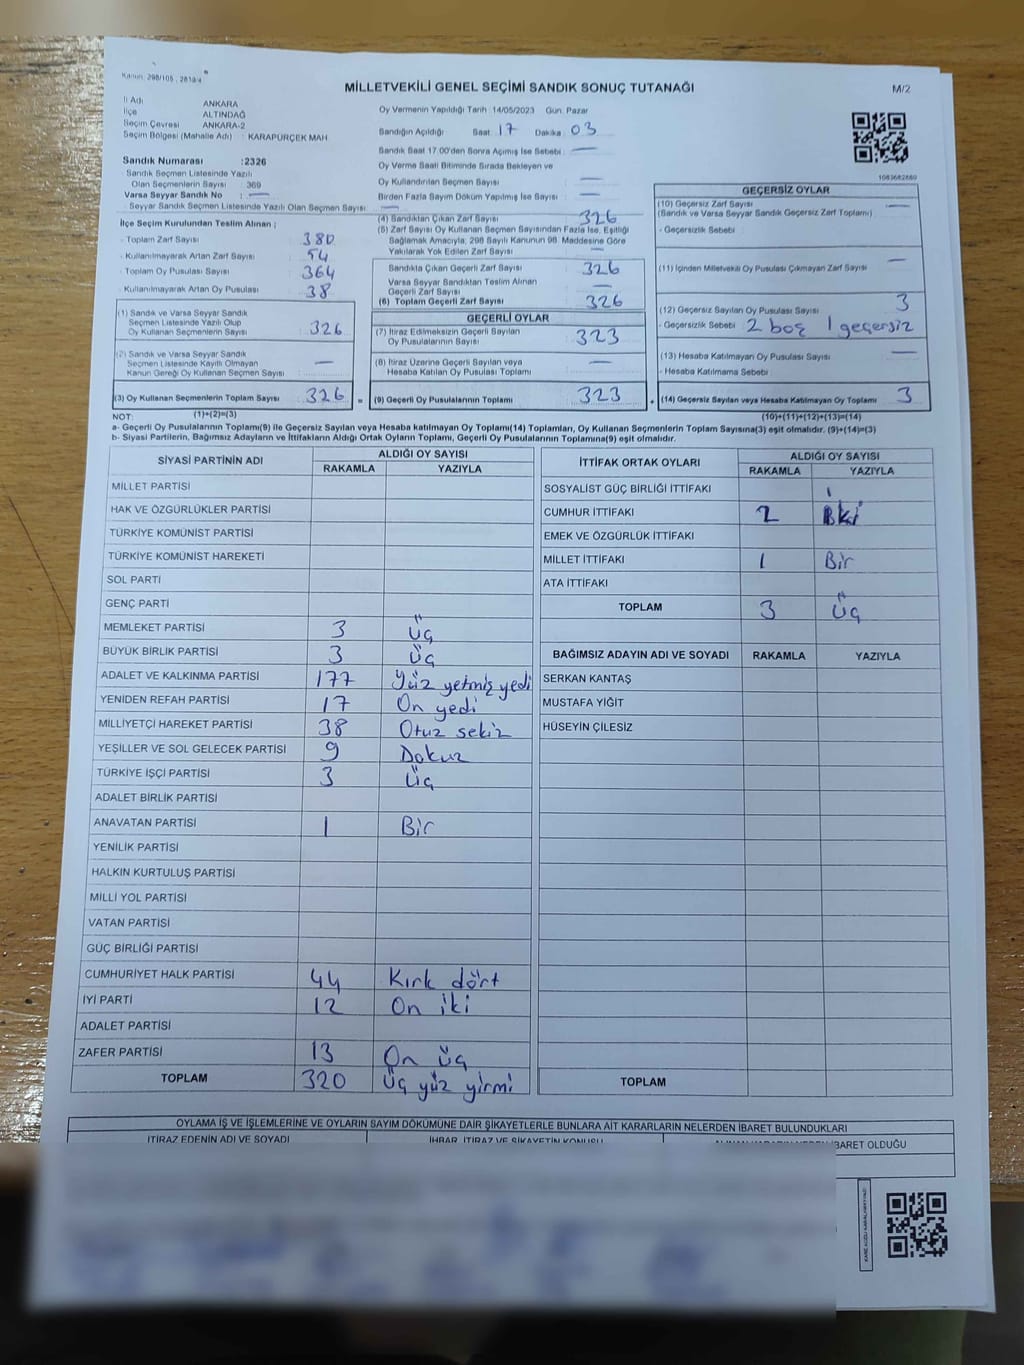 Kanun: 298/105, 2819/4
MİLLETVEKİLİ GENEL SEÇİMİ SANDIK SONUÇ TUTANAĞI
M/2
İl Adı ANKARA
İlçe ALTINDAĞ
Seçim Çevresi ANKARA-2
Seçim Bölgesi (Mahalle Adı) : KARAPÜRÇEK MAH
Oy Vermenin Yapıldığı Tarih : 14/05/2023 Gün: Pazar
Sandığın Açıldığı Saat 17 Dakika 03
Sandık Saat 17.00'den Sonra Açılmış İse Sebebi : —
Oy Verme Saati Bitiminde Sırada Bekleyen ve
Oy Kullandırılan Seçmen Sayısı —
Birden Fazla Sayım Döküm Yapılmış İse Sayısı —
1083682880
Sandık Numarası :2326
Sandık Seçmen Listesinde Yazılı
Olan Seçmenlerin Sayısı : 369
Varsa Seyyar Sandık No : —
Seyyar Sandık Seçmen Listesinde Yazılı Olan Seçmen Sayısı : —
İlçe Seçim Kurulundan Teslim Alınan ;
- Toplam Zarf Sayısı 380
- Kullanılmayarak Artan Zarf Sayısı 54
- Toplam Oy Pusulası Sayısı 364
- Kullanılmayarak Artan Oy Pusulası 38
(1) Sandık ve Varsa Seyyar Sandık
Seçmen Listesinde Yazılı Olup
Oy Kullanan Seçmenlerin Sayısı 326
(2) Sandık ve Varsa Seyyar Sandık
Seçmen Listesinde Kayıtlı Olmayan
Kanun Gereği Oy Kullanan Seçmen Sayısı —
(3) Oy Kullanan Seçmenlerin Toplam Sayısı 326 =
(1)+(2)=(3)
(4) Sandıktan Çıkan Zarf Sayısı 326
(5) Zarf Sayısı Oy Kullanan Seçmen Sayısından Fazla İse, Eşitliği
Sağlamak Amacıyla, 298 Sayılı Kanunun 98. Maddesine Göre
Yakılarak Yok Edilen Zarf Sayısı —
Sandıkta Çıkan Geçerli Zarf Sayısı 326
Varsa Seyyar Sandıktan Teslim Alınan
Geçerli Zarf Sayısı —
(6) Toplam Geçerli Zarf Sayısı 326
GEÇERLİ OYLAR
(7) İtiraz Edilmeksizin Geçerli Sayılan
Oy Pusulalarının Sayısı: 323
(8) İtiraz Üzerine Geçerli Sayılan veya
Hesaba Katılan Oy Pusulası Toplamı —
(9) Geçerli Oy Pusulalarının Toplamı 323 +
GEÇERSİZ OYLAR
(10) Geçersiz Zarf Sayısı —
(Sandık ve Varsa Seyyar Sandık Geçersiz Zarf Toplamı)
- Geçersizlik Sebebi
(11) İçinden Milletvekili Oy Pusulası Çıkmayan Zarf Sayısı —
(12) Geçersiz Sayılan Oy Pusulası Sayısı 3
- Geçersizlik Sebebi 2 boş 1 geçersiz
(13) Hesaba Katılmayan Oy Pusulası Sayısı —
- Hesaba Katılmama Sebebi
(14) Geçersiz Sayılan veya Hesaba Katılmayan Oy Toplamı 3
(10)+(11)+(12)+(13)=(14)
NOT:
a- Geçerli Oy Pusulalarının Toplamı(9) ile Geçersiz Sayılan veya Hesaba Katılmayan Oy Toplamı(14) Toplamları, Oy Kullanan Seçmenlerin Toplam Sayısına(3) eşit olmalıdır. (9)+(14)=(3)
b- Siyasi Partilerin, Bağımsız Adayların ve İttifakların Aldığı Ortak Oyların Toplamı, Geçerli Oy Pusulalarının Toplamına(9) eşit olmalıdır.
SİYASİ PARTİNİN ADI ALDIĞI OY SAYISI
RAKAMLA YAZIYLA
MİLLET PARTİSİ
HAK VE ÖZGÜRLÜKLER PARTİSİ
TÜRKİYE KOMÜNİST PARTİSİ
TÜRKİYE KOMÜNİST HAREKETİ
SOL PARTİ
GENÇ PARTİ
MEMLEKET PARTİSİ 3 Üç
BÜYÜK BİRLİK PARTİSİ 3 Üç
ADALET VE KALKINMA PARTİSİ 177 Yüz yetmiş yedi
YENİDEN REFAH PARTİSİ 17 On yedi
MİLLİYETÇİ HAREKET PARTİSİ 38 Otuz sekiz
YEŞİLLER VE SOL GELECEK PARTİSİ 9 Dokuz
TÜRKİYE İŞÇİ PARTİSİ 3 Üç
ADALET BİRLİK PARTİSİ
ANAVATAN PARTİSİ 1 Bir
YENİLİK PARTİSİ
HALKIN KURTULUŞ PARTİSİ
MİLLİ YOL PARTİSİ
VATAN PARTİSİ
GÜÇ BİRLİĞİ PARTİSİ
CUMHURİYET HALK PARTİSİ 44 Kırk dört
İYİ PARTİ 12 On iki
ADALET PARTİSİ
ZAFER PARTİSİ 13 On üç
TOPLAM 320 Üç yüz yirmi
İTTİFAK ORTAK OYLARI ALDIĞI OY SAYISI
RAKAMLA YAZIYLA
SOSYALİST GÜÇ BİRLİĞİ İTTİFAKI
CUMHUR İTTİFAKI 2 İki
EMEK VE ÖZGÜRLÜK İTTİFAKI
MİLLET İTTİFAKI 1 Bir
ATA İTTİFAKI
TOPLAM 3 Üç
BAĞIMSIZ ADAYIN ADI VE SOYADI RAKAMLA YAZIYLA
SERKAN KANTAŞ
MUSTAFA YİĞİT
HÜSEYİN ÇİLESİZ
TOPLAM
OYLAMA İŞ VE İŞLEMLERİNE VE OYLARIN SAYIM DÖKÜMÜNE DAİR ŞİKAYETLERLE BUNLARA AİT KARARLARIN NELERDEN İBARET BULUNDUKLARI
İTİRAZ EDENİN ADI VE SOYADI İHBAR, İTİRAZ VE ŞİKAYETİN KONUSU İBARET OLDUĞU